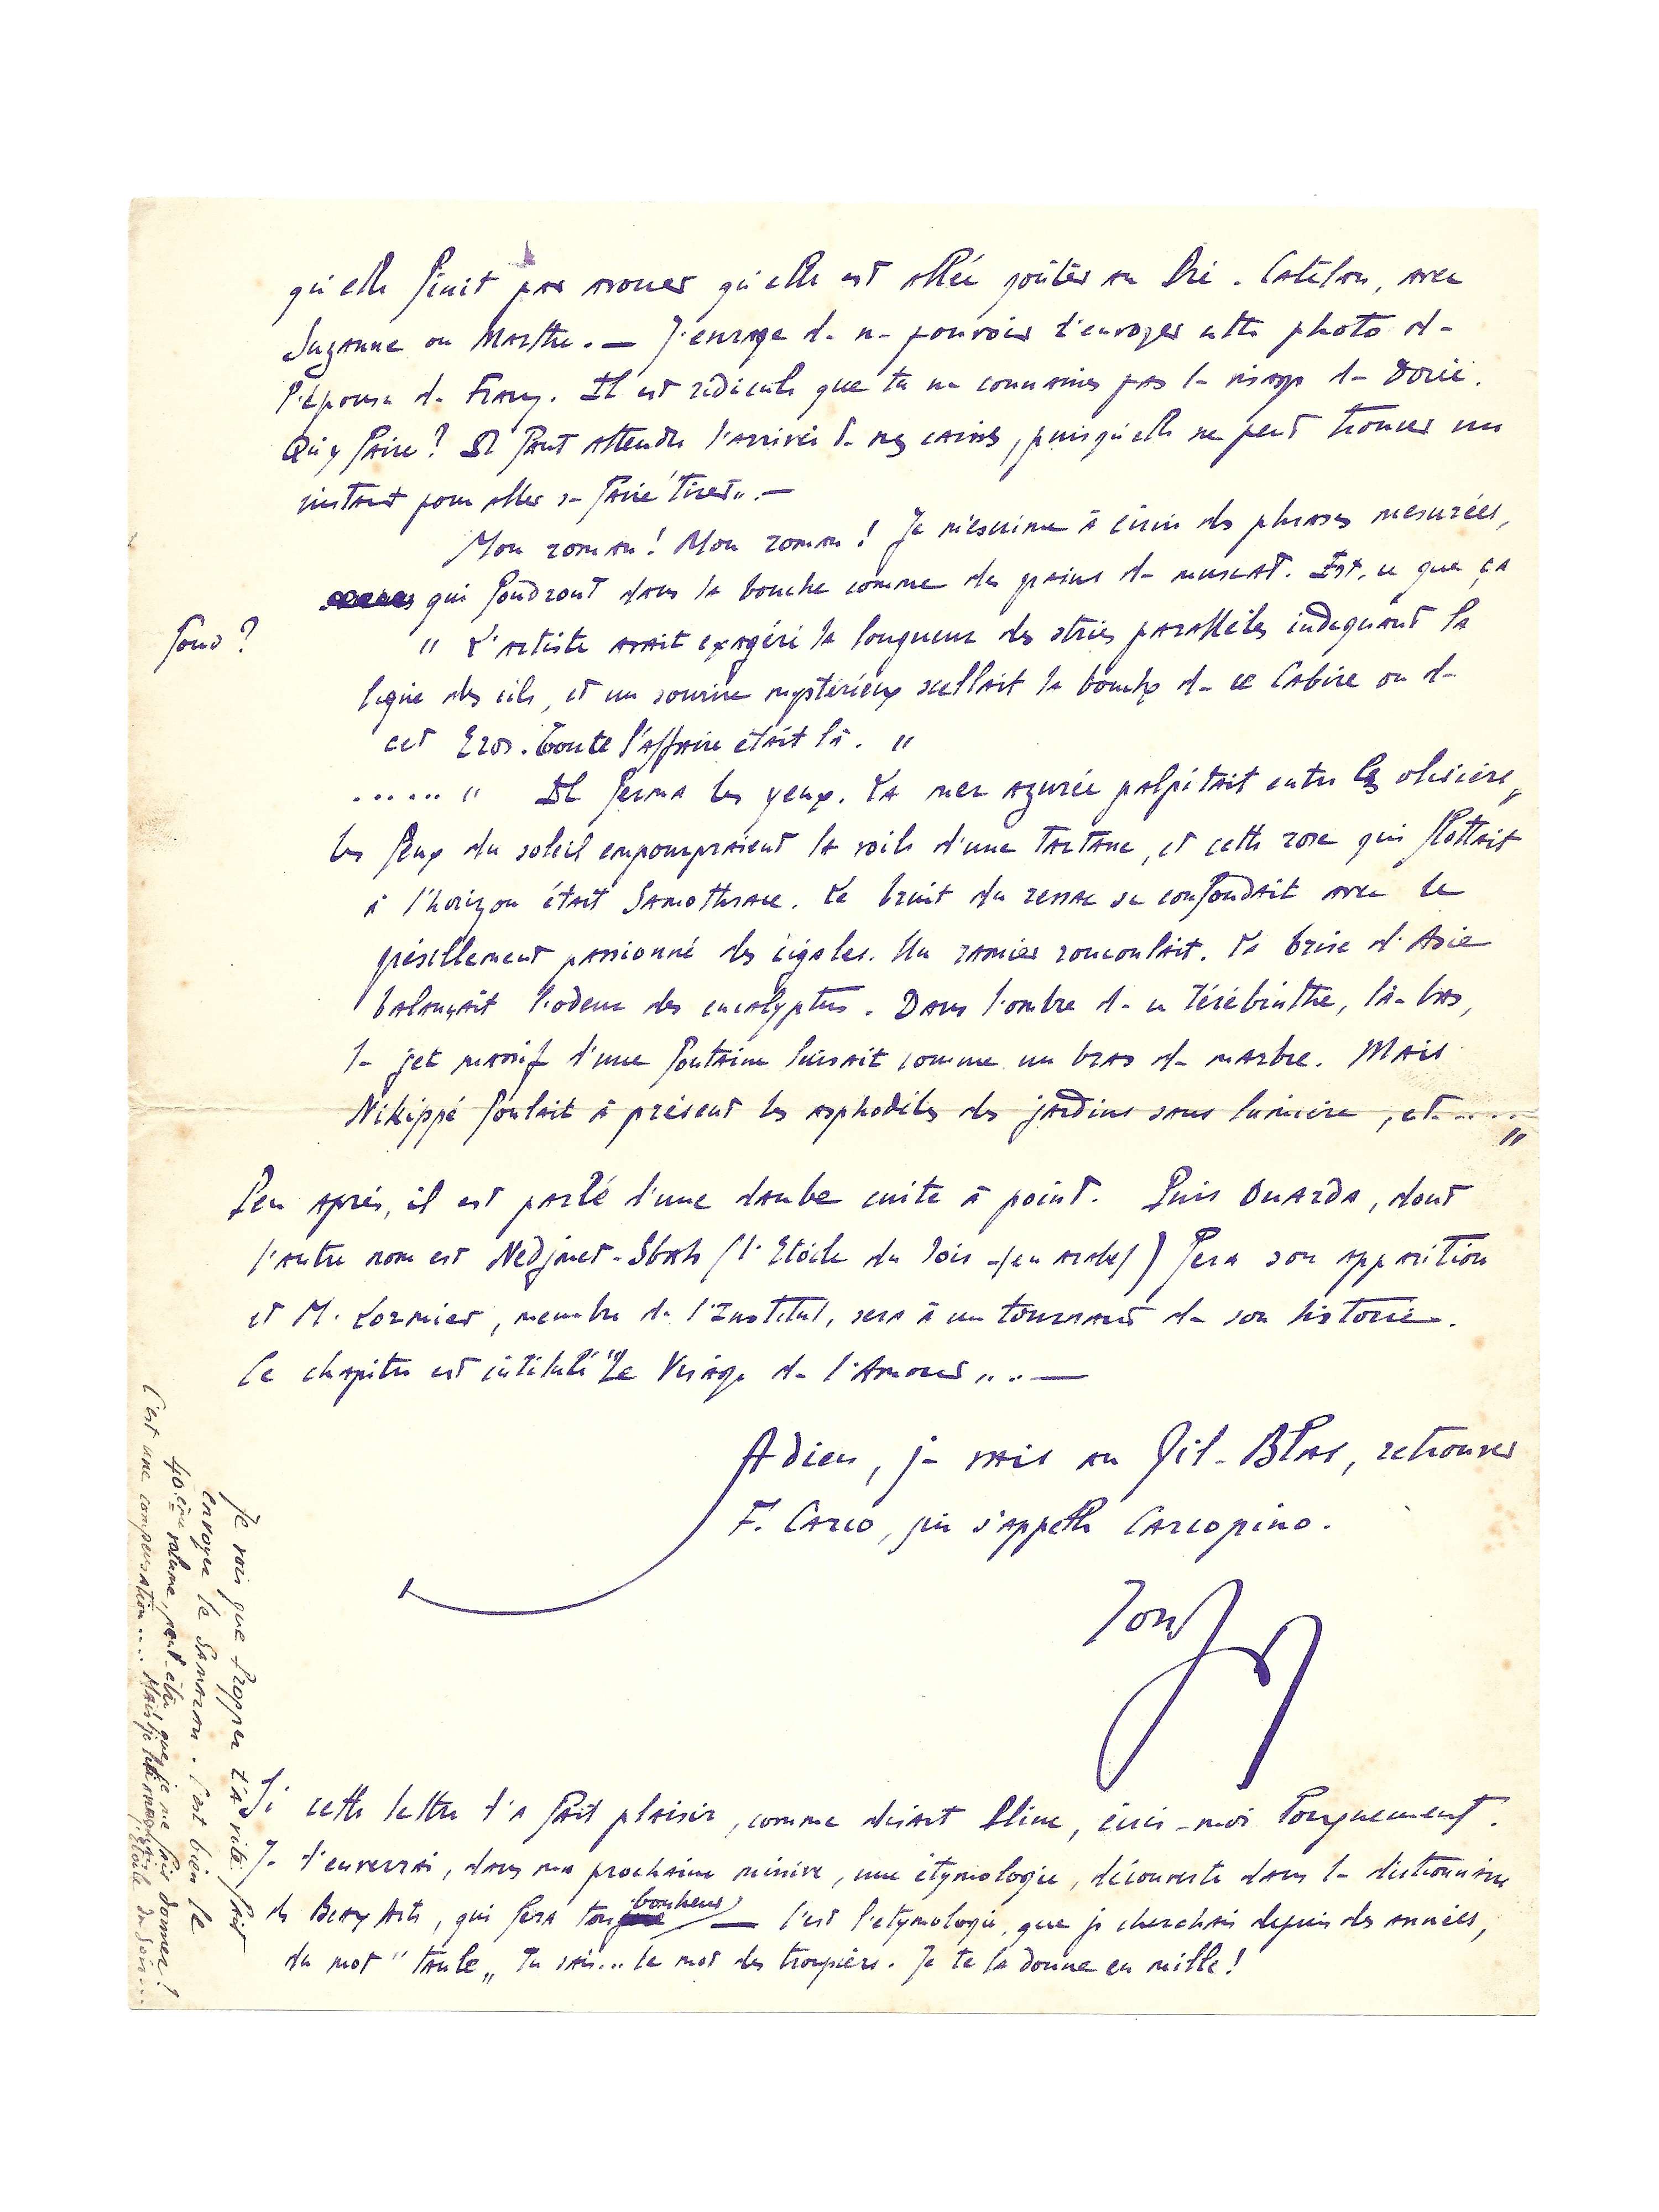 qu'elle finit par avouer qu'elle est allée goûter au Pré-Catelan, avec
Suzanne ou Marthe. — J'enrage de ne pouvoir t'envoyer cette photo de
l'épouse de Francy. Il est ridicule que tu ne connaisses pas le visage de Dorié.
Qu'y faire? Il faut attendre l'arrivée de nos, puisqu'elle ne peut trouver un
instant pour aller se faire "tirer". —
Mon roman! Mon roman! Je m'escrime à écrire des phrases mesurées,
qui fondront dans la bouche comme des grains de muscat. Est-ce que ça
fond?
" L'artiste avait exagéré la longueur des stries parallèles indiquant la
ligne des cils, et un sourire mystérieux scellait la bouche de ce Cabire ou de
cet Eros. Toute l'affaire était là. "
...... " Il ferma les yeux. La mer azurée palpitait entre les oliviers,
les feux du soleil empourpraient la voile d'une tartane, et cette rose qui flottait
à l'horizon était Samothrace. Le bruit du ressac se confondait avec le
grésillement passionné des cigales. Un ramier roucoulait. La brise d'Asie
balançait l'odeur des eucalyptus. Dans l'ombre de ce térébinthe, là-bas,
le jet massif d'une fontaine luisait comme un bras de marbre. Mais
Nikippé foulait à présent les asphodèles des jardins sans lumière, et ..... "
Peu après, il est parlé d'une daube cuite à point. Puis Ouarda, dont
l'autre nom est Nedjmet-Sbah (l'Etoile du Soir - (en arabe)) fera son apparition
et M. Lormier, membre de l'Institut, sera à un tournant de son histoire.
Ce chapitre est intitulé "Le Visage de l'Amour". —
Adieu, je vais au Gil-Blas, retrouver
F. Carco, qui s'appelle Carcopino.
Ton
Si cette lettre t'a fait plaisir, comme disait Pline, écris-moi longuement.
Je t'enverrai, dans ma prochaine missive, une étymologie, découverte dans le dictionnaire
des Beaux Arts, qui fera ton bonheur — C'est l'etymologie, que je cherchais depuis des années,
du mot "taule" Tu sais... le mot des troupiers. Je te la donne en mille!
Je vois que Propper t'a vite fait
envoyer le Samazan. C'est bien le
40ème volume, peut-être que je me fais donner!
C'est une compensation.... Mais je l'Etoile du Soir...